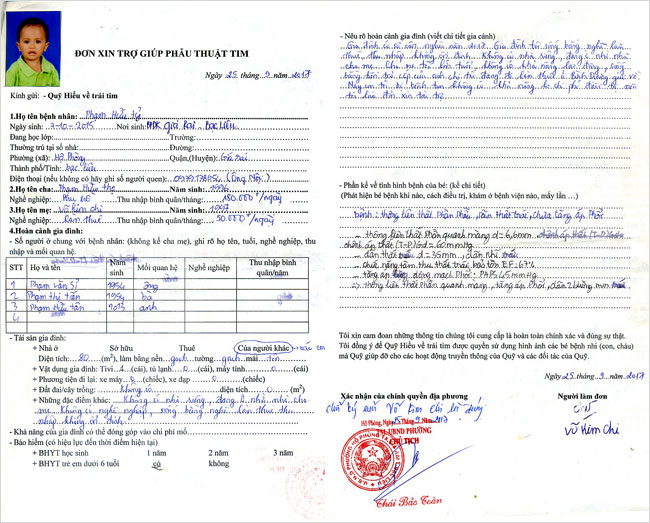 ĐƠN XIN TRỢ GIÚP PHẪU THUẬT TIM
Ngày 25 tháng 9 năm 2017
Kính gửi: - Quỹ Hiểu về trái tim
1.Họ tên bệnh nhân: Phạm Hữu Tỷ
Ngày sinh: 7-10-2015 Nơi sinh: Giá Rai, Bạc Liêu
Đang học lớp: Trường:
Thường trú tại số nhà: Đường:
Phường (xã): Hộ Phòng Quận,(Huyện): Giá Rai
Thành phố/Tỉnh: Bạc Liêu
Điện thoại (nếu không có hãy ghi số người quen): (Ông Nội)
2.Họ tên cha: Phạm Hữu Thọ Năm sinh: 1996
Nghề nghiệp: Thu nhập bình quân/ngày: 180.000đ/ngày
3.Họ tên mẹ: Võ Kim Chi Năm sinh:
Nghề nghiệp: Làm thuê Thu nhập bình quân/ngày: 50.000đ/ngày
4.Hoàn cảnh gia đình:
- Số người ở chung với bệnh nhân: (không kể cha mẹ), ghi rõ họ tên, tuổi, nghề nghiệp, thu
nhập và mối quan hệ.
STT Họ và tên Năm sinh Mối quan hệ Nghề nghiệp Thu nhập bình quân/năm
1 Phạm Văn Sĩ 1954 ông
2 Phạm Thị Tấn 1954 bà
3 Phạm Hữu Tân 2013 anh
4
- Tài sản gia đình:
+ Nhà ở Sở hữu Thuê Của người khác
Diện tích: 80 (m²), làm bằng nền: gạch tường: gạch mái: tôn
+ Vật dụng gia đình: Tivi (cái), tủ lạnh 0 (cái), máy tính 0 (cái)
+ Phương tiện đi lại: xe máy (chiếc), xe đạp 0 (chiếc)
+ Đất đai/cây trồng: Không có diện tích: 0 (m²)
+ Những đặc điểm khác: Không có nhà riêng, đang ở nhà nhờ cha
mẹ. Không có nghề nghiệp, sống bằng nghề làm thuê thu
nhập không ổn định.
- Khả năng của gia đình có thể đóng góp vào chi phí mổ
- Bảo hiểm (có hiệu lực đến thời điểm hiện tại)
+ BHYT học sinh 1 năm 2 năm 3 năm
+ BHYT trẻ em dưới 6 tuổi có không.
- Nêu rõ hoàn cảnh gia đình (viết chi tiết gia cảnh)
Gia đình có sổ cận nghèo năm 2017. Gia đình tôi sống bằng nghề làm
thuê, thu nhập không ổn định. Không có nhà riêng, đang ở nhờ nhà
cha mẹ. Cha mẹ tôi lớn tuổi, không có khả năng lao động, sống
bằng tiền trợ cấp của anh chị tôi đang đi làm thuê ở Bình Dương gửi về.
Nay con tôi bị bệnh tim không có khả năng lo chi phí điều trị nên
tôi làm đơn xin tài trợ.
- Phần kể về tình hình bệnh của bé: (kể chi tiết)
(Phát hiện bé bệnh khi nào, cách điều trị, khám ở bệnh viện nào, mấy lần …)
Bệnh: thông liên thất phần màng, dãn thất trái, chưa tăng áp phổi
- thông liên thất phần quanh màng d = 6,6mm
chênh áp thất (T-P) Gd = 60mmHg
- dãn thất trái d = 35mm, dãn nhĩ trái
- chức năng tâm thu thất trái bảo tồn EF: 67%
- tăng áp động mạch phổi: PAPS 45mmHg
=> thông liên thất phần quanh màng, tăng áp phổi, dãn 2 buồng tim trái
Tôi xin cam đoan những thông tin chúng tôi cung cấp là hoàn toàn chính xác và đúng sự thật.
Tôi đồng ý để Quỹ Hiểu về trái tim được quyền sử dụng hình ảnh các bé bệnh nhi (con, cháu)
mà Quỹ giúp đỡ cho các hoạt động truyền thông của Quỹ và các đối tác của Quỹ.
Ngày 25 tháng 9 năm 2017
Xác nhận của chính quyền địa phương Người làm đơn
chữ ký của Võ Kim Chi là đúng
Hộ Phòng, Ngày 25 tháng 9 năm 2017
TM-UBND PHƯỜNG
CHỦ TỊCH
Thái Bảo Toàn
Chi
Võ Kim Chi